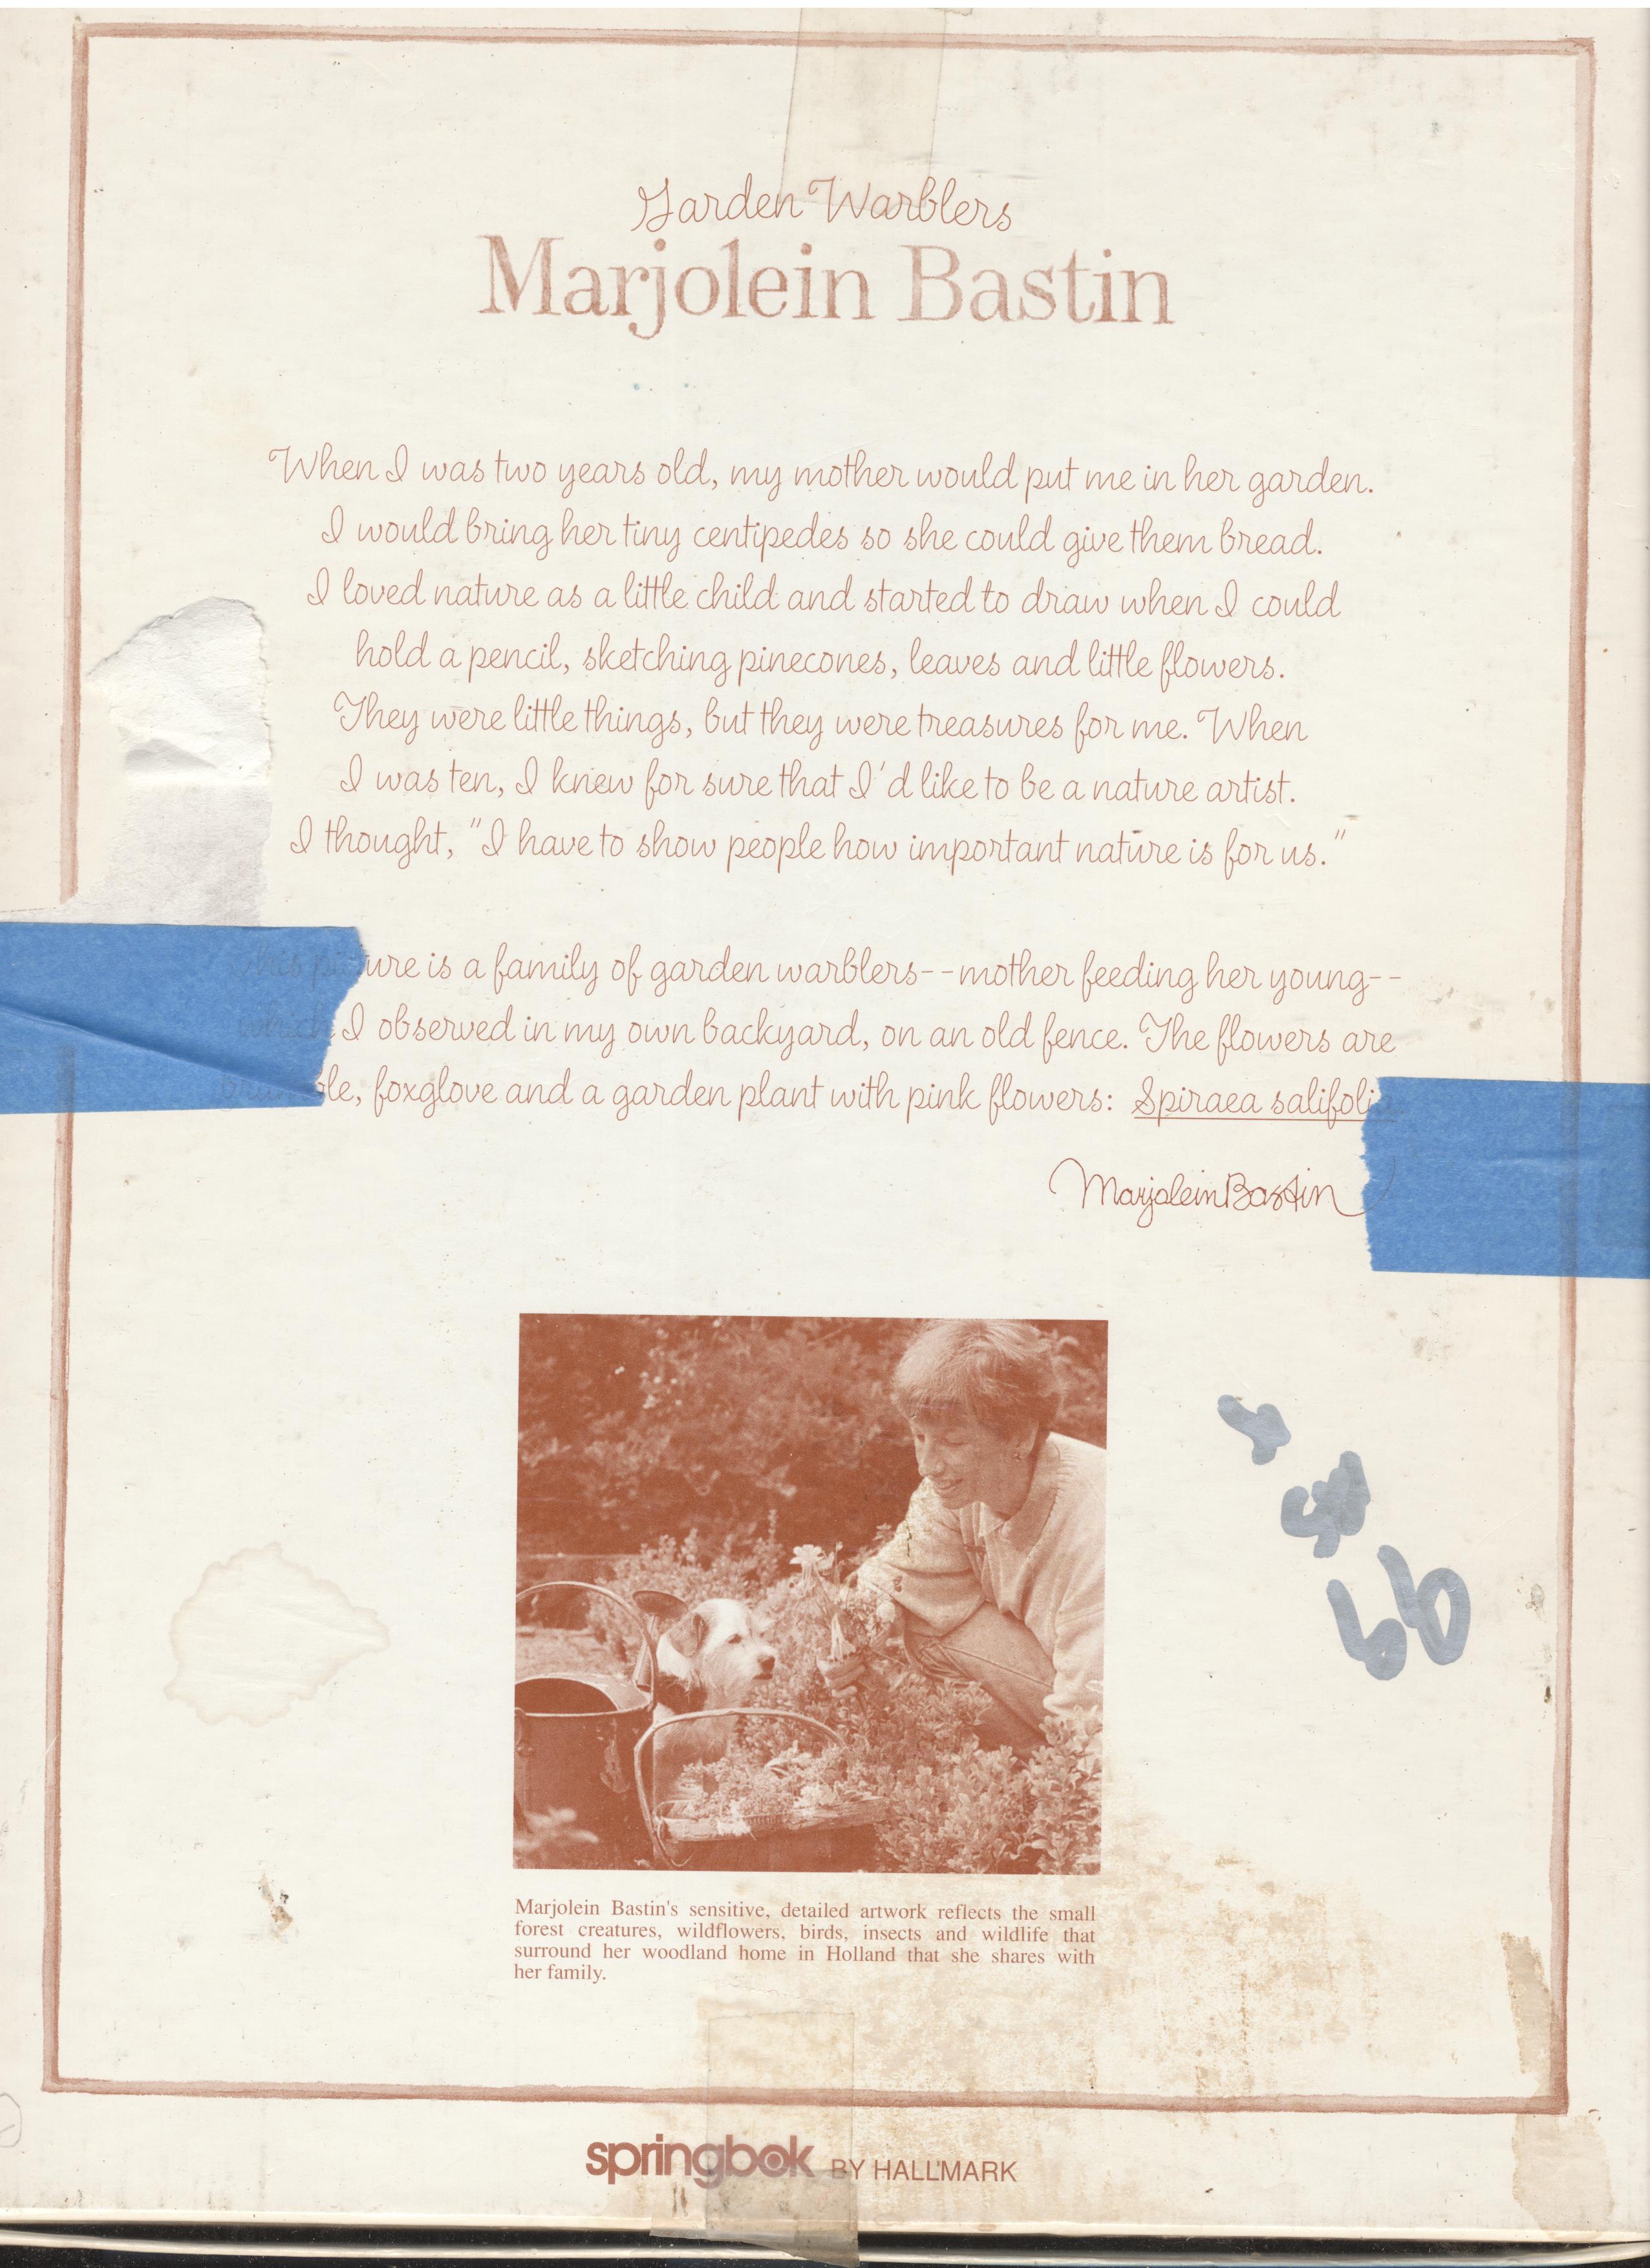 Garden Warblers
Marjolein Bastin
When I was two years old, my mother would put me in her garden.
I would bring her tiny centipedes so she could give them bread.
I loved nature as a little child and started to draw when I could
hold a pencil, sketching pinecones, leaves and little flowers.
They were little things, but they were treasures for me. When
I was ten, I knew for sure that I'd like to be a nature artist.
I thought, "I have to show people how important nature is for us."
This picture is a family of garden warblers--mother feeding her young--
which I observed in my own backyard, on an old fence. The flowers are
bramble, foxglove and a garden plant with pink flowers: Spiraea salifolia.
Marjolein Bastin
Marjolein Bastin's sensitive, detailed artwork reflects the small
forest creatures, wildflowers, birds, insects and wildlife that
surround her woodland home in Holland that she shares with
her family.
springbok BY HALLMARK